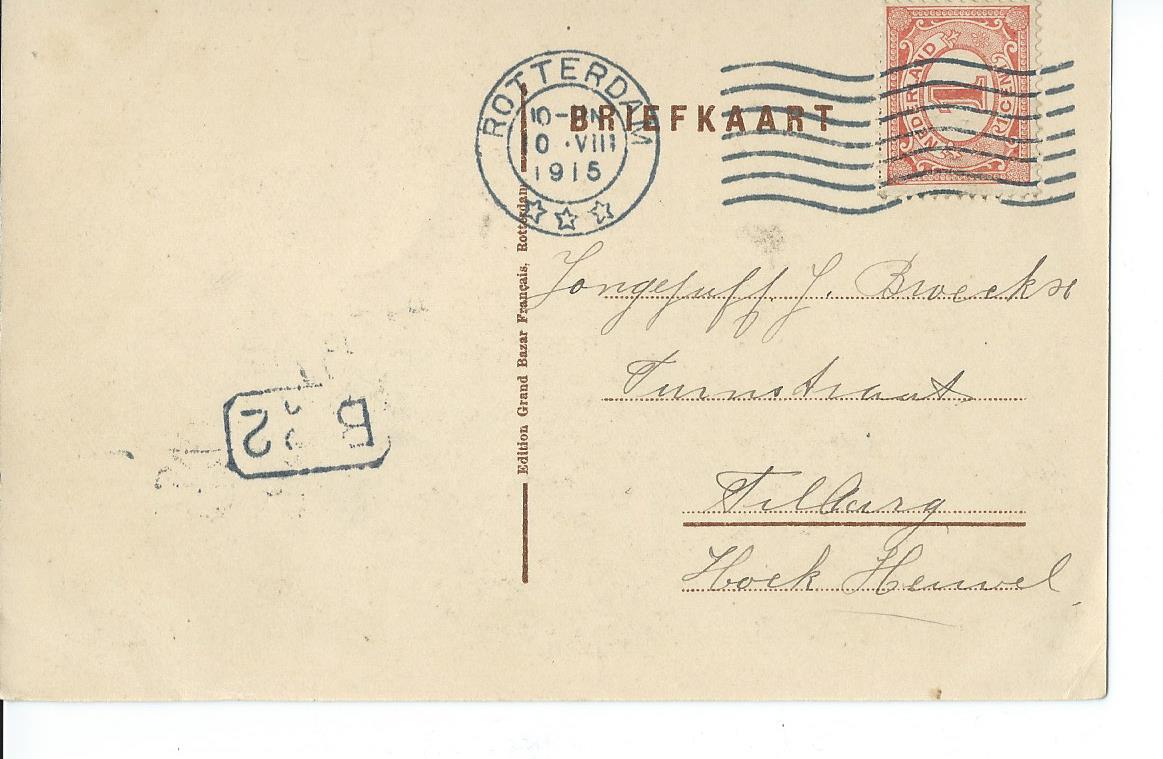 ROTTERDAM
VIII
1915
BRIEFKAART
NEDERLAND
1
CENT
Edition Grand Bazar Français, Rotterdam
Jongejuff. J. Broeckx
Tuinstraat
Tilburg
Hoek Heuvel
B 2